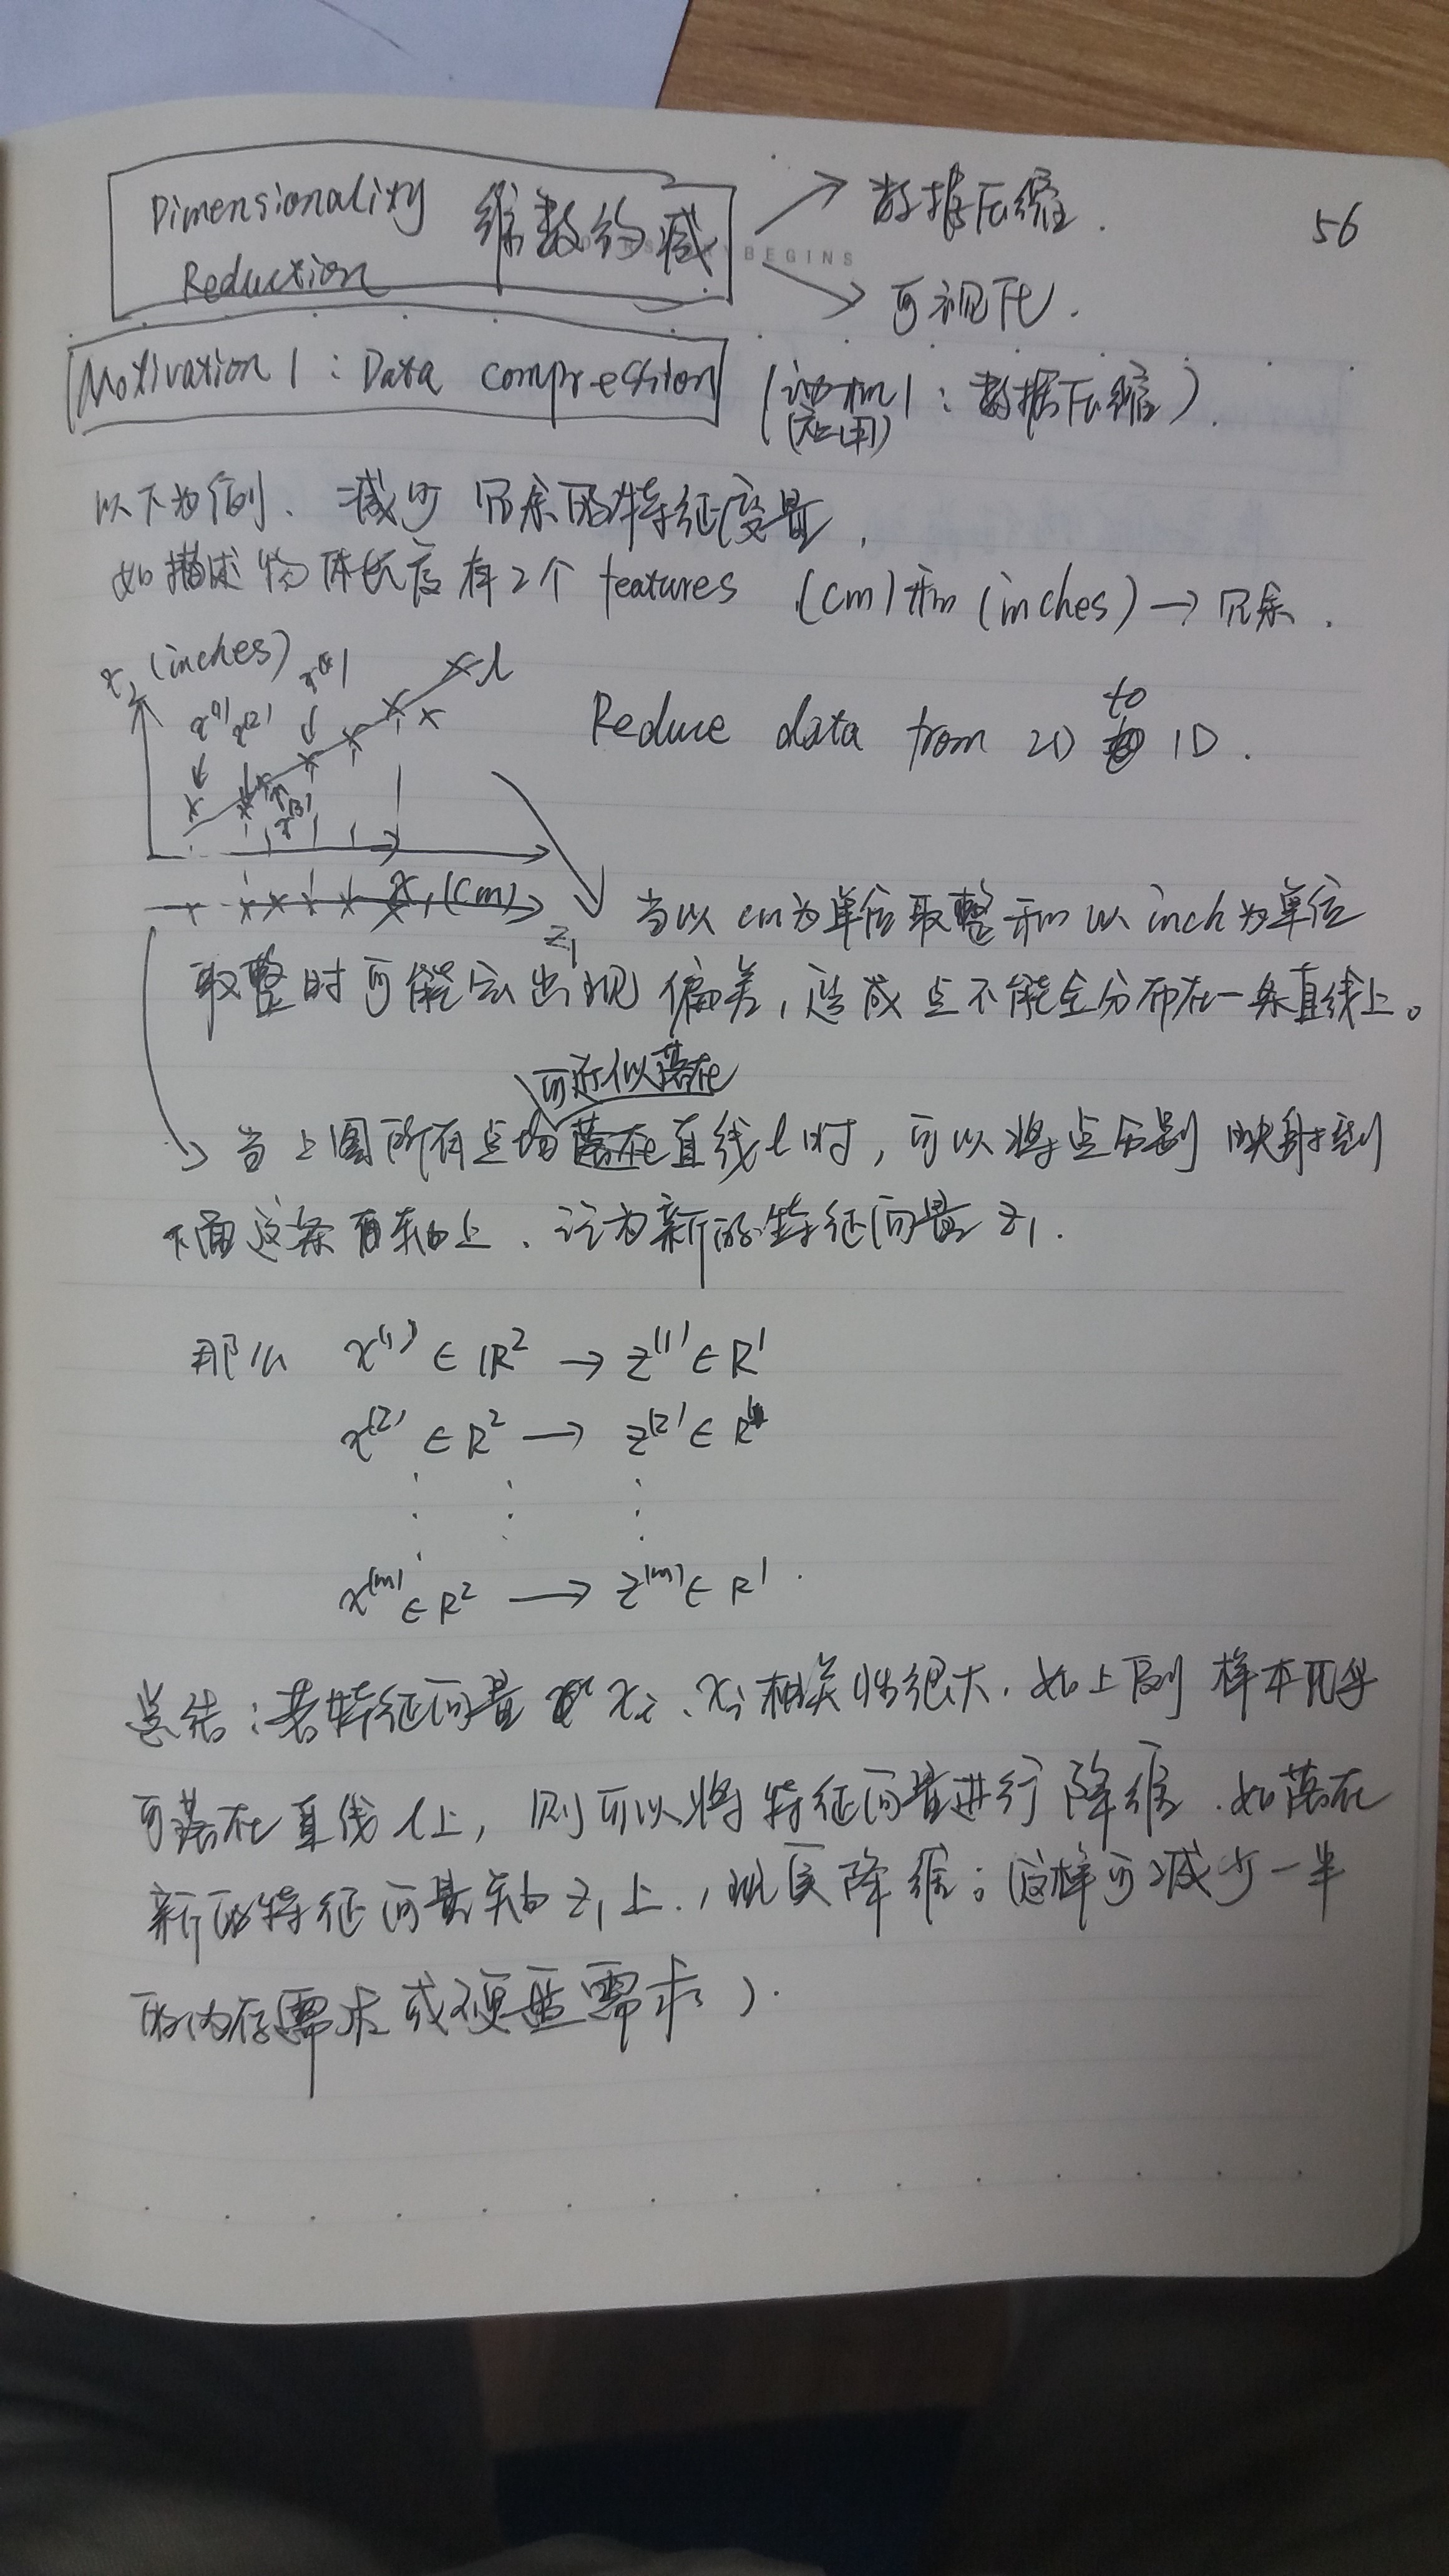 56
Dimensionality Reduction 维数约减
BEGINS
数据压缩.
可视化.
Motivation 1: Data compression (动机1: 数据压缩).
(应用)
以下为例、减少冗余的特征变量,
如描述物体长度有2个 features (cm)和(inches) → 冗余.
x₂ (inches)
x⁽¹⁾ x⁽²⁾
x⁽³⁾
l
x₁ (cm)
z₁
Reduce data from 2D to 1D.
当以 cm为单位取整和以 inch为单位
取整时可能会出现偏差, 造成点不能全分布在一条直线上。
可近似落在
当上图所有点均落在直线l时, 可以将点分别映射到
下面这条直轴上、记为新的特征向量 z₁.
那么 x⁽¹⁾ ∈ ℝ² → z⁽¹⁾ ∈ R¹
x⁽²⁾ ∈ R² → z⁽²⁾ ∈ R¹
x⁽ᵐ⁾ ∈ R² → z⁽ᵐ⁾ ∈ R¹.
总结: 若特征向量 xᵢ、xⱼ 相关性很大. 如上例 样本几乎
可落在直线l上, 则可以将特征向量进行降维. 如落在
新的特征向量轴 z₁上., 实降维; (这样可减少一半
的内存需求或硬盘需求).